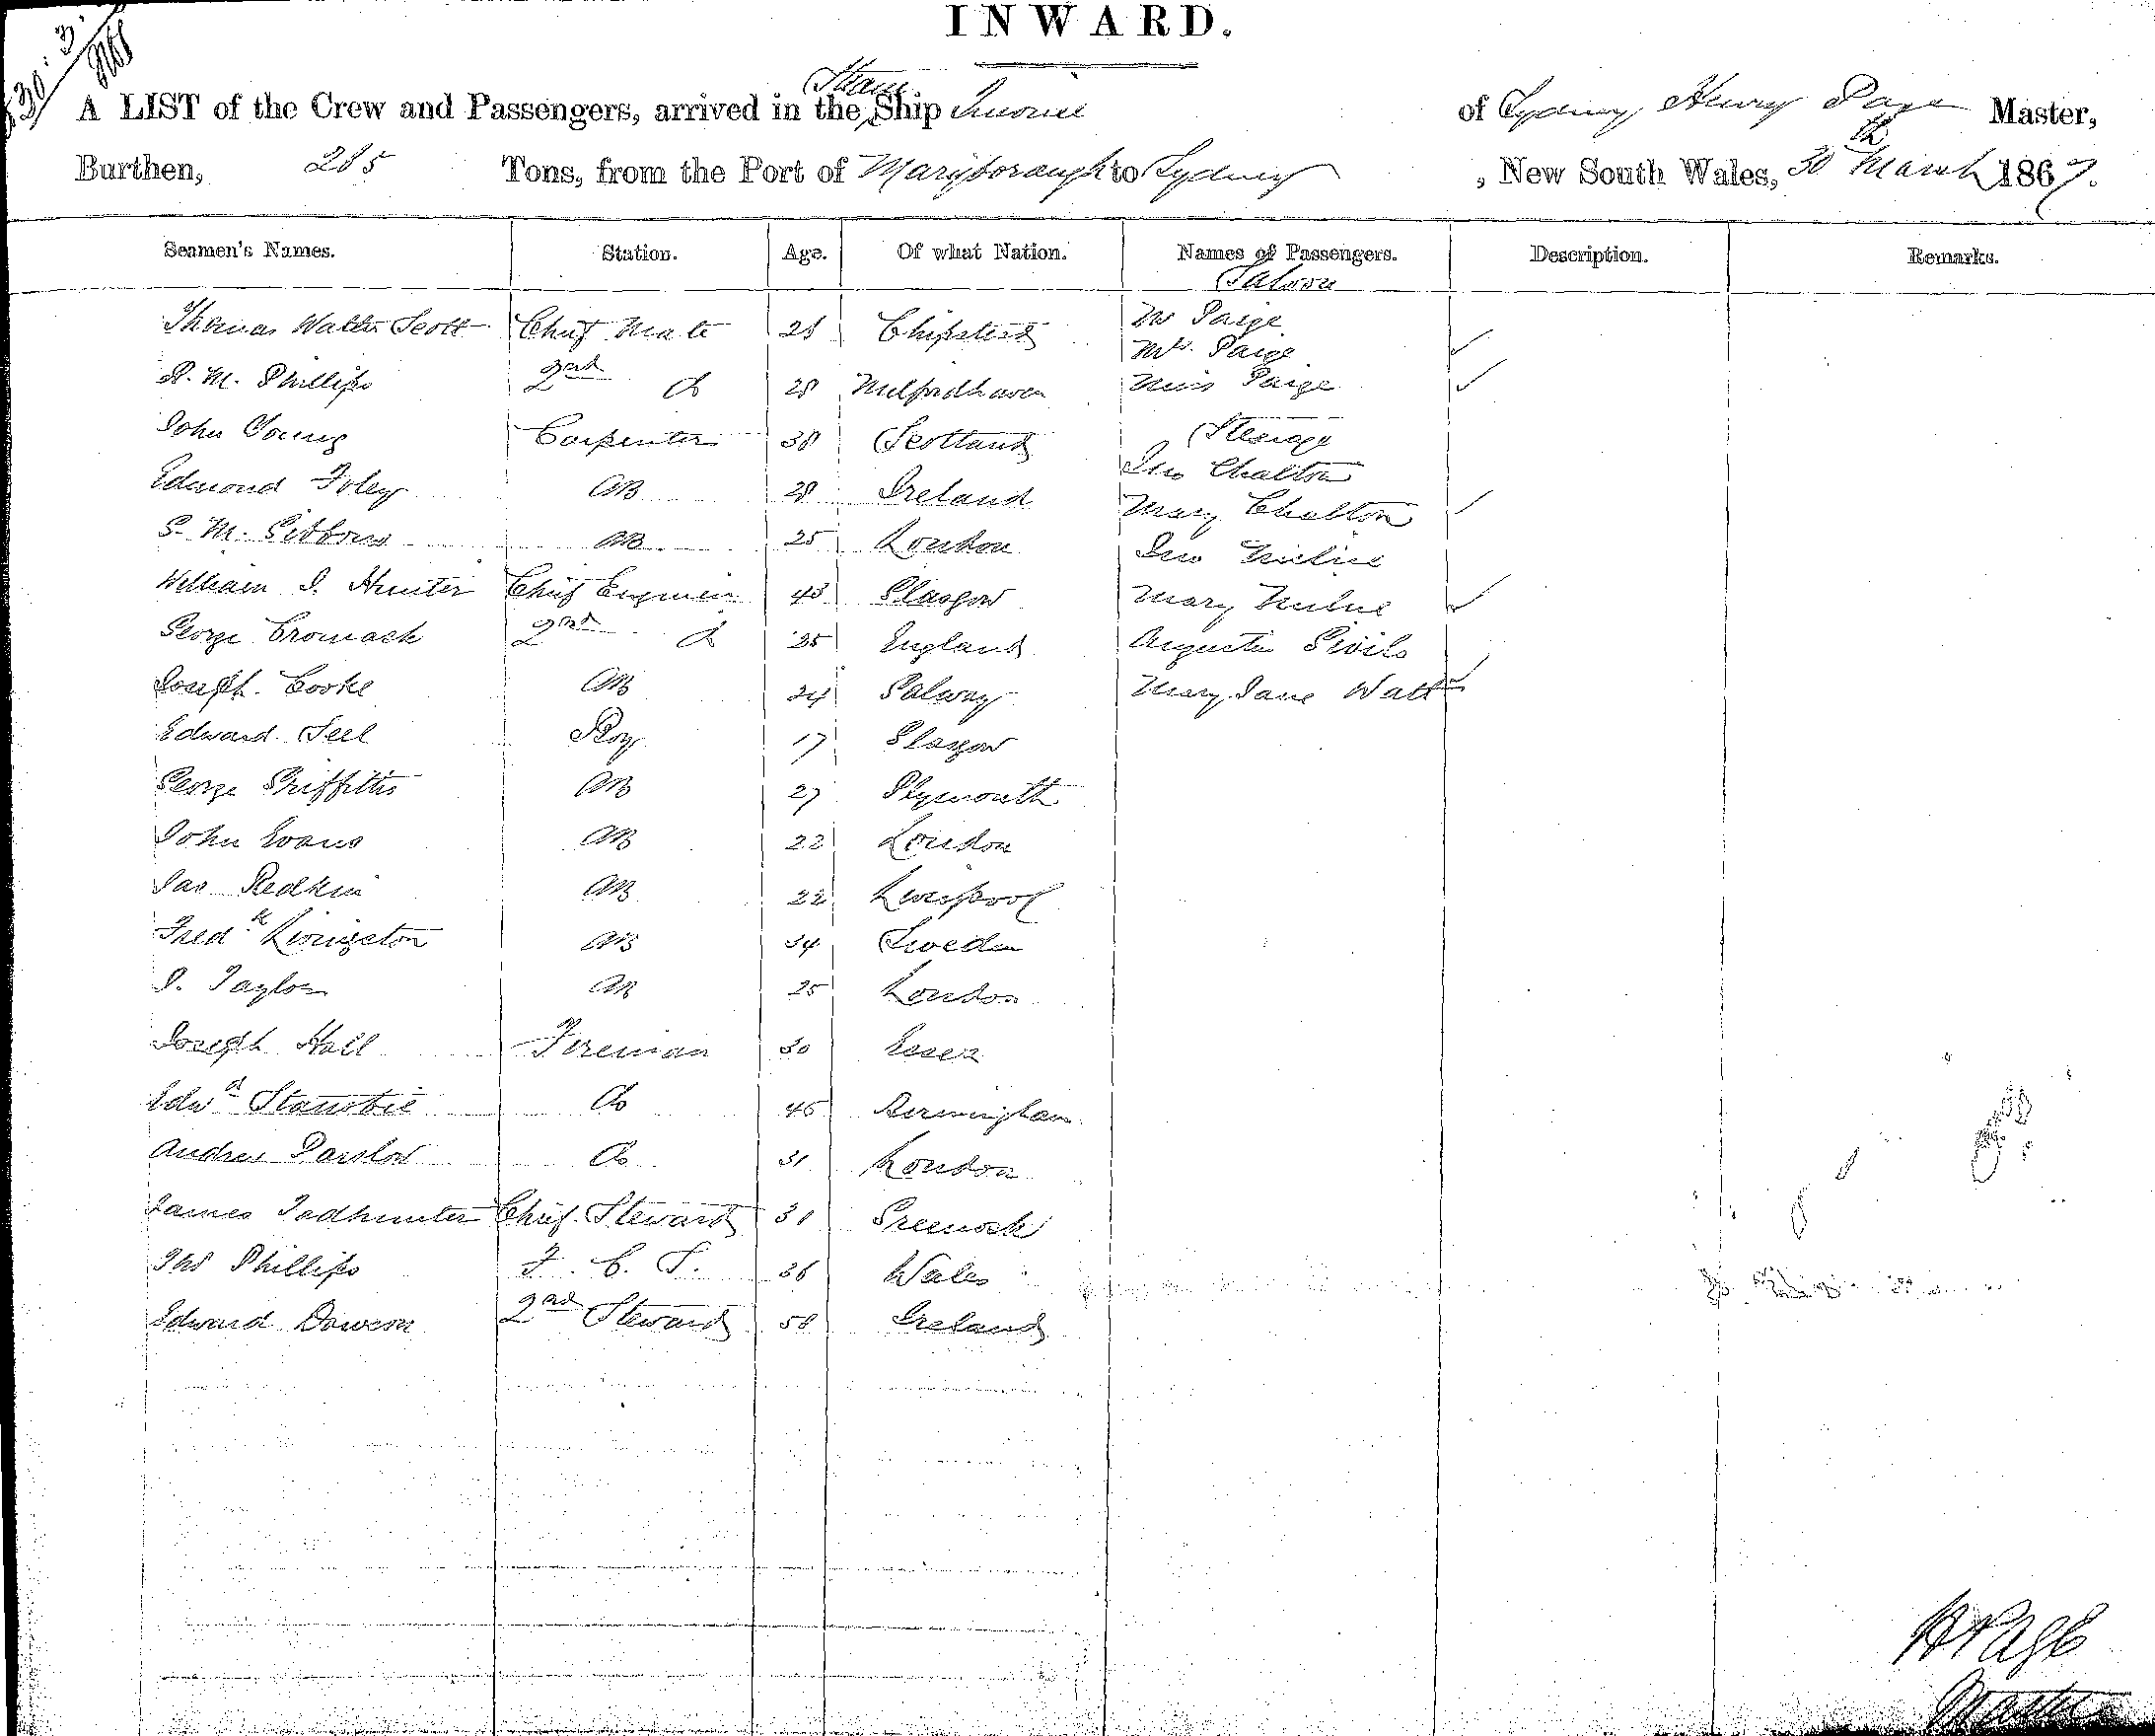 INWARD.
A LIST of the Crew and Passengers, arrived in the Steam Ship of Sydney, Henry Page Master,
Burthen, 285 Tons, from the Port of Maryborough to Sydney, New South Wales, 30th March 1867.
Seamen's Names. Station. Age. Of what Nation. Names of Passengers. Description. Remarks.
Saloon
Thomas Walter Scott Chief Mate 28 Mr Paige
Mrs. Paige
R. M. Phillips 2nd Do 28 Milfordhaven Miss Paige
John Young Carpenter 38 Scotland Steerage
Jno Chalton
Edmond Foley AB 28 Ireland Mary Chalton
S. M. Gibbons AB 25 London Jno Milne
William J. Hunter Chief Engineer 43 Glasgow Mary Milne
George Cromack 2nd Do 25 England Augusta
Joseph Cooke AB 24 Galway Mary Jane Watt
Edward Seel Boy 17 Glasgow
George Griffiths AB 27 Plymouth
John Evans AB 22 London
Jas Redkin AB 22 Liverpool
Fredk Livingston AB 34 Sweden
J. Taylor AB 25 London
Joseph Hall Fireman 30 Essex
Edwd Stanobie Do 45 Birmingham
Andrew Parslow Do 31 London
James Todhunter Chief Steward 31 Greenock
Thos Phillips F. C. S. 36 Wales
Edward Dawson 2nd Steward 58 Ireland
H Page
Master